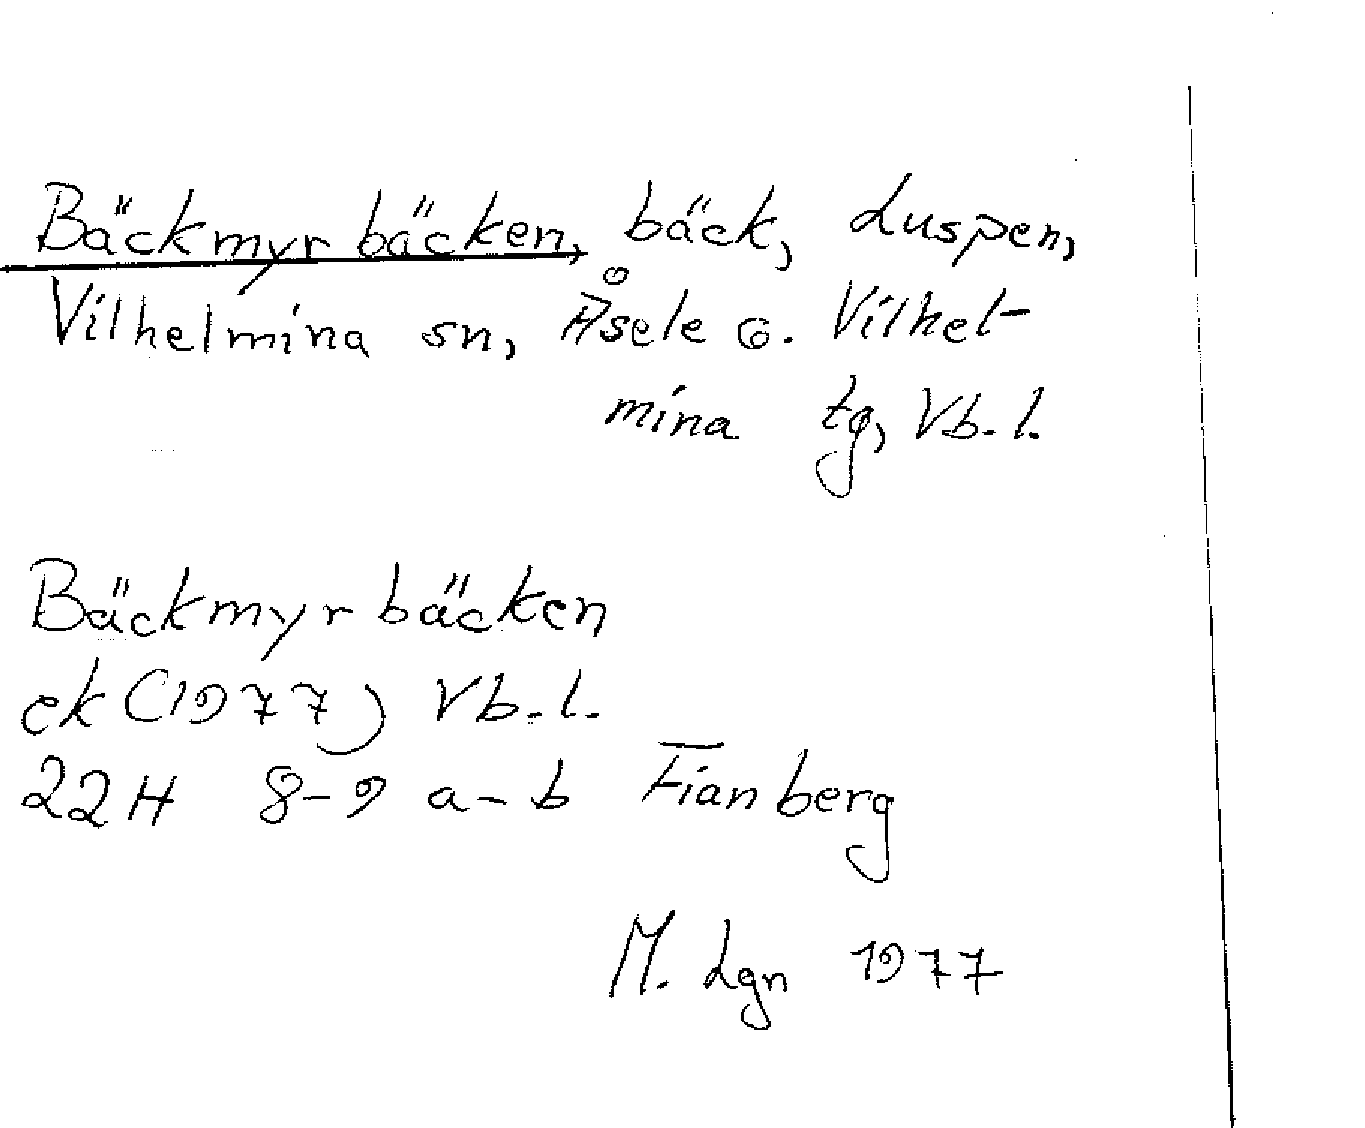 Bäckmyrbäcken, bäck, Luspen,
Vilhelmina sn, Åsele o. Vilhel-
mina tg, Vb. l.
Bäckmyrbäcken
ek (1977) Vb. l.
22H 8-9 a-b Fianberg
M. Lgn 1977